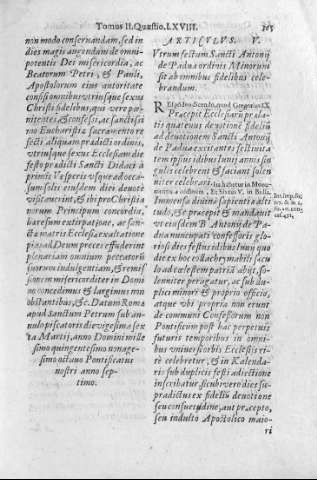 Tomus II. Quæstio. LXVIII. 315
non modo conseruandam, sed in
dies magis augendam de omni-
potentis Dei misericordia, ac
Beatorum Petri, & Pauli,
Apostolorum eius autoritate
confisi omnibus vtriusque sexus
Christi fidelibus, qui vere pœ-
nitentes, & confessi, ac sanctissi
mo Eucharistiæ sacramento re
fecti aliquam prædicti ordinis,
vtriusque sexus Ecclesiam die
festo prædicti Sancti Didaci à
primis Vesperis vsque ad occa-
sum solis eiusdem diei deuotè
visitauerint, & ibi pro Christia
norum Principum concordia,
hæresum extirpatione, ac san-
ctæ matris Ecclesiæ exaltatione
pias ad Deum preces effuderint
plenariam omnium peccatorū
suorum indulgentiam, & remis
sionem misericorditer in Domi
no concedimus & largimur non
obstantibus, &c. Datum Romæ
apud Sanctum Petrum sub an-
nulo piscatoris die vigesima sex
ta Martij, anno Domini mille
simo quingentesimo nonage-
simo octauo Pontificatus
nostri anno sep-
timo.
ARTICVLVS. V.
Vtrum festum Sancti Antonij
de Padua ordinis Minorum
sit ab omnibus fidelibus cele-
brandum.
Respōdeo dicendo, quod Gregorius IX.
Præcepit Ecclesiarū præla-
tis quatenus deuotionē fideliū
ad deuotionem Sancti Antonij
de Padua excitantes festiuita
tem ipsius idibus Iunij annis sin
gulis celebrent & faciant solen
niter celebrari.
Immensa diuinæ sapientiæ alti
tudo, &
præcepit & mandauit
vt eiusdem B. Antonij de Pa-
dua nuncupati confessoris glo-
riosi dies festus idibus Iunij quo
die ex hoc ergastulo mirabilis sæcu
lo ad cœlestem patriā abijt, so-
lenniter peragatur, ac sub du-
plici minori & proprio officio,
atque vbi proprio non erunt
de communi Confessorum non
Pontificum post hac perpetuis
futuris temporibus in omni-
bus vniuersis orbis Ecclesijs ri-
tè celebretur, & in Kalenda-
rio sub duplicis festi additione
inscribatur, sicubi vero dies su-
prædictus ex fidelium deuotione
seu consuetudine, aut præcepto,
seu indulto Apostolico maio-
ri